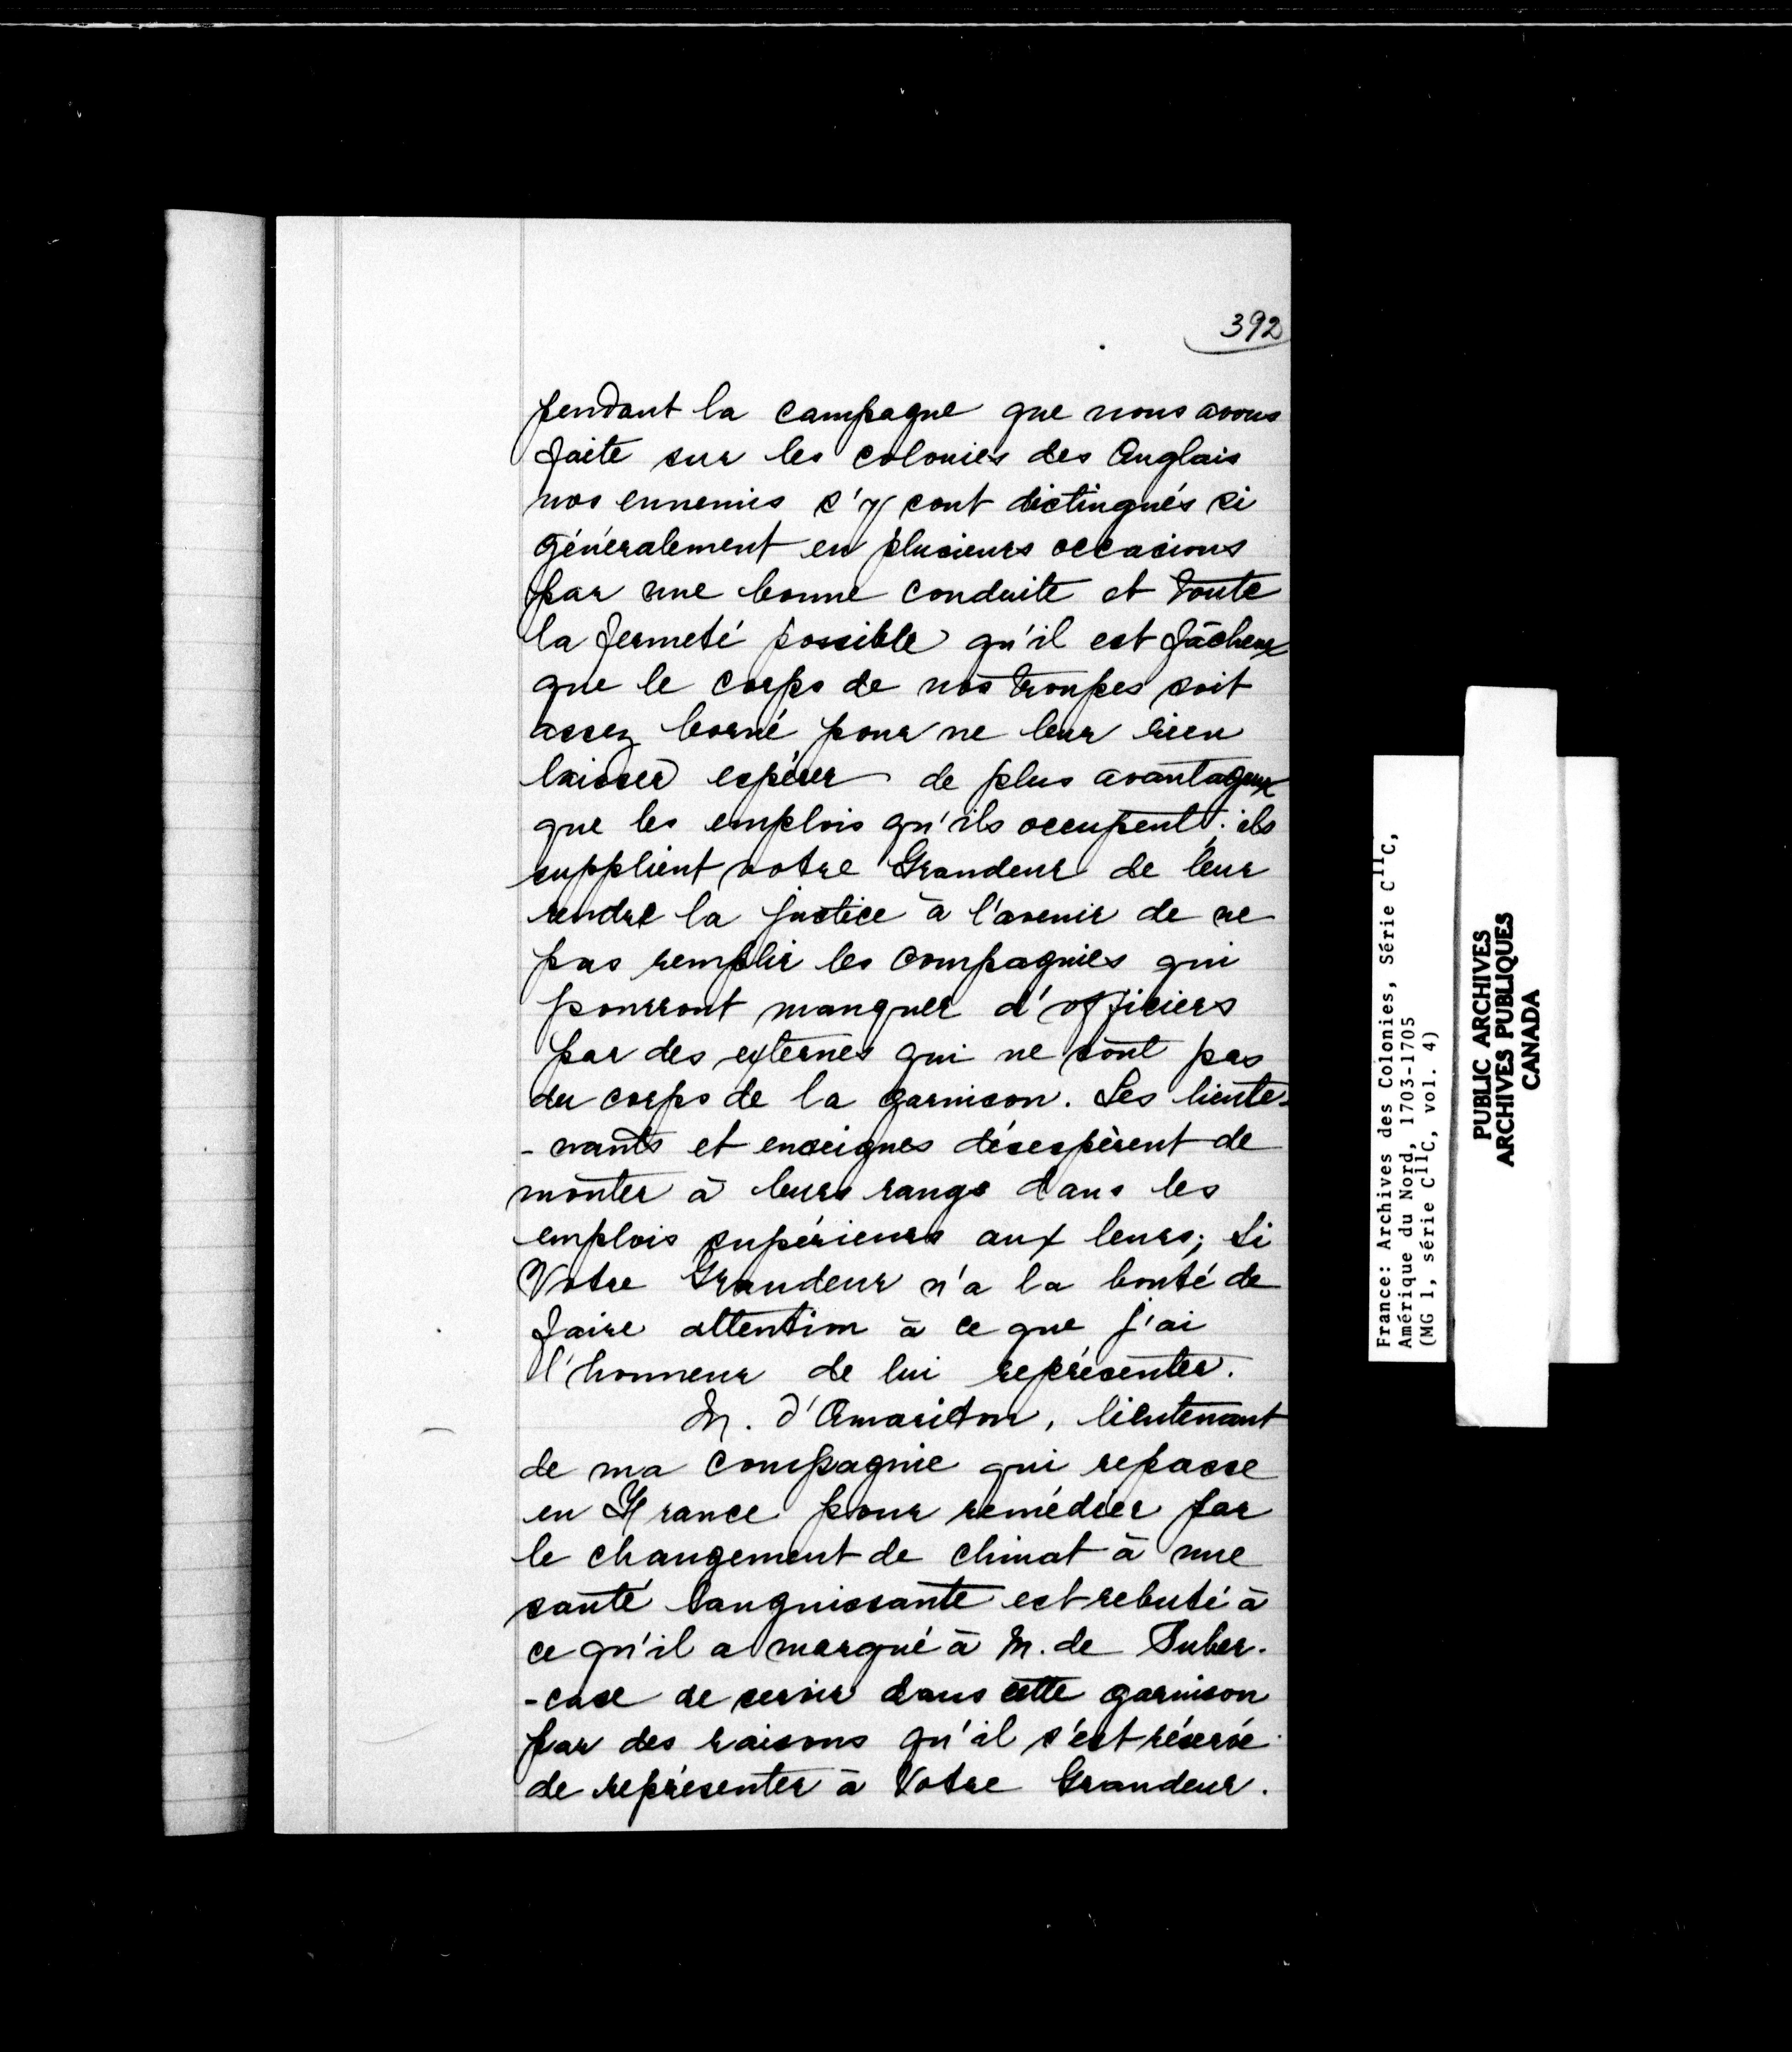 392
pendant la campagne que nous avons
faite sur les colonies des Anglais
nos ennemis s'y sont distingués si
généralement en plusieurs occasions
par une bonne conduite et toute
la fermeté possible qu'il est fâcheux
que le corps de nos troupes soit
assez borné pour ne leur rien
laisser espérer de plus avantageux
que les emplois qu'ils occupent; ils
supplient votre Grandeur de leur
rendre la justice à l'avenir de ne
pas remplir les compagnies qui
pourront manquer d'officiers
par des externes qui ne sont pas
du corps de la garnison. Les lieute-
-nants et enseignes désespèrent de
monter à leurs rangs dans les
emplois supérieurs aux leurs; Si
Votre Grandeur n'a la bonté de
faire attention à ce que j'ai
l'honneur de lui représenter.
M. d'Amariton, lieutenant
de ma compagnie qui repasse
en France pour remédier par
le changement de climat à une
santé languissante est rebuté à
ce qu'il a marqué à M. de Suber-
-case de servir dans cette garnison
par des raisons qu'il s'est réservé
de représenter à Votre Grandeur.
France: Archives des Colonies, Série C11C,
Amérique du Nord, 1703-1705
(MG 1, série C11C, vol. 4)
PUBLIC ARCHIVES
ARCHIVES PUBLIQUES
CANADA